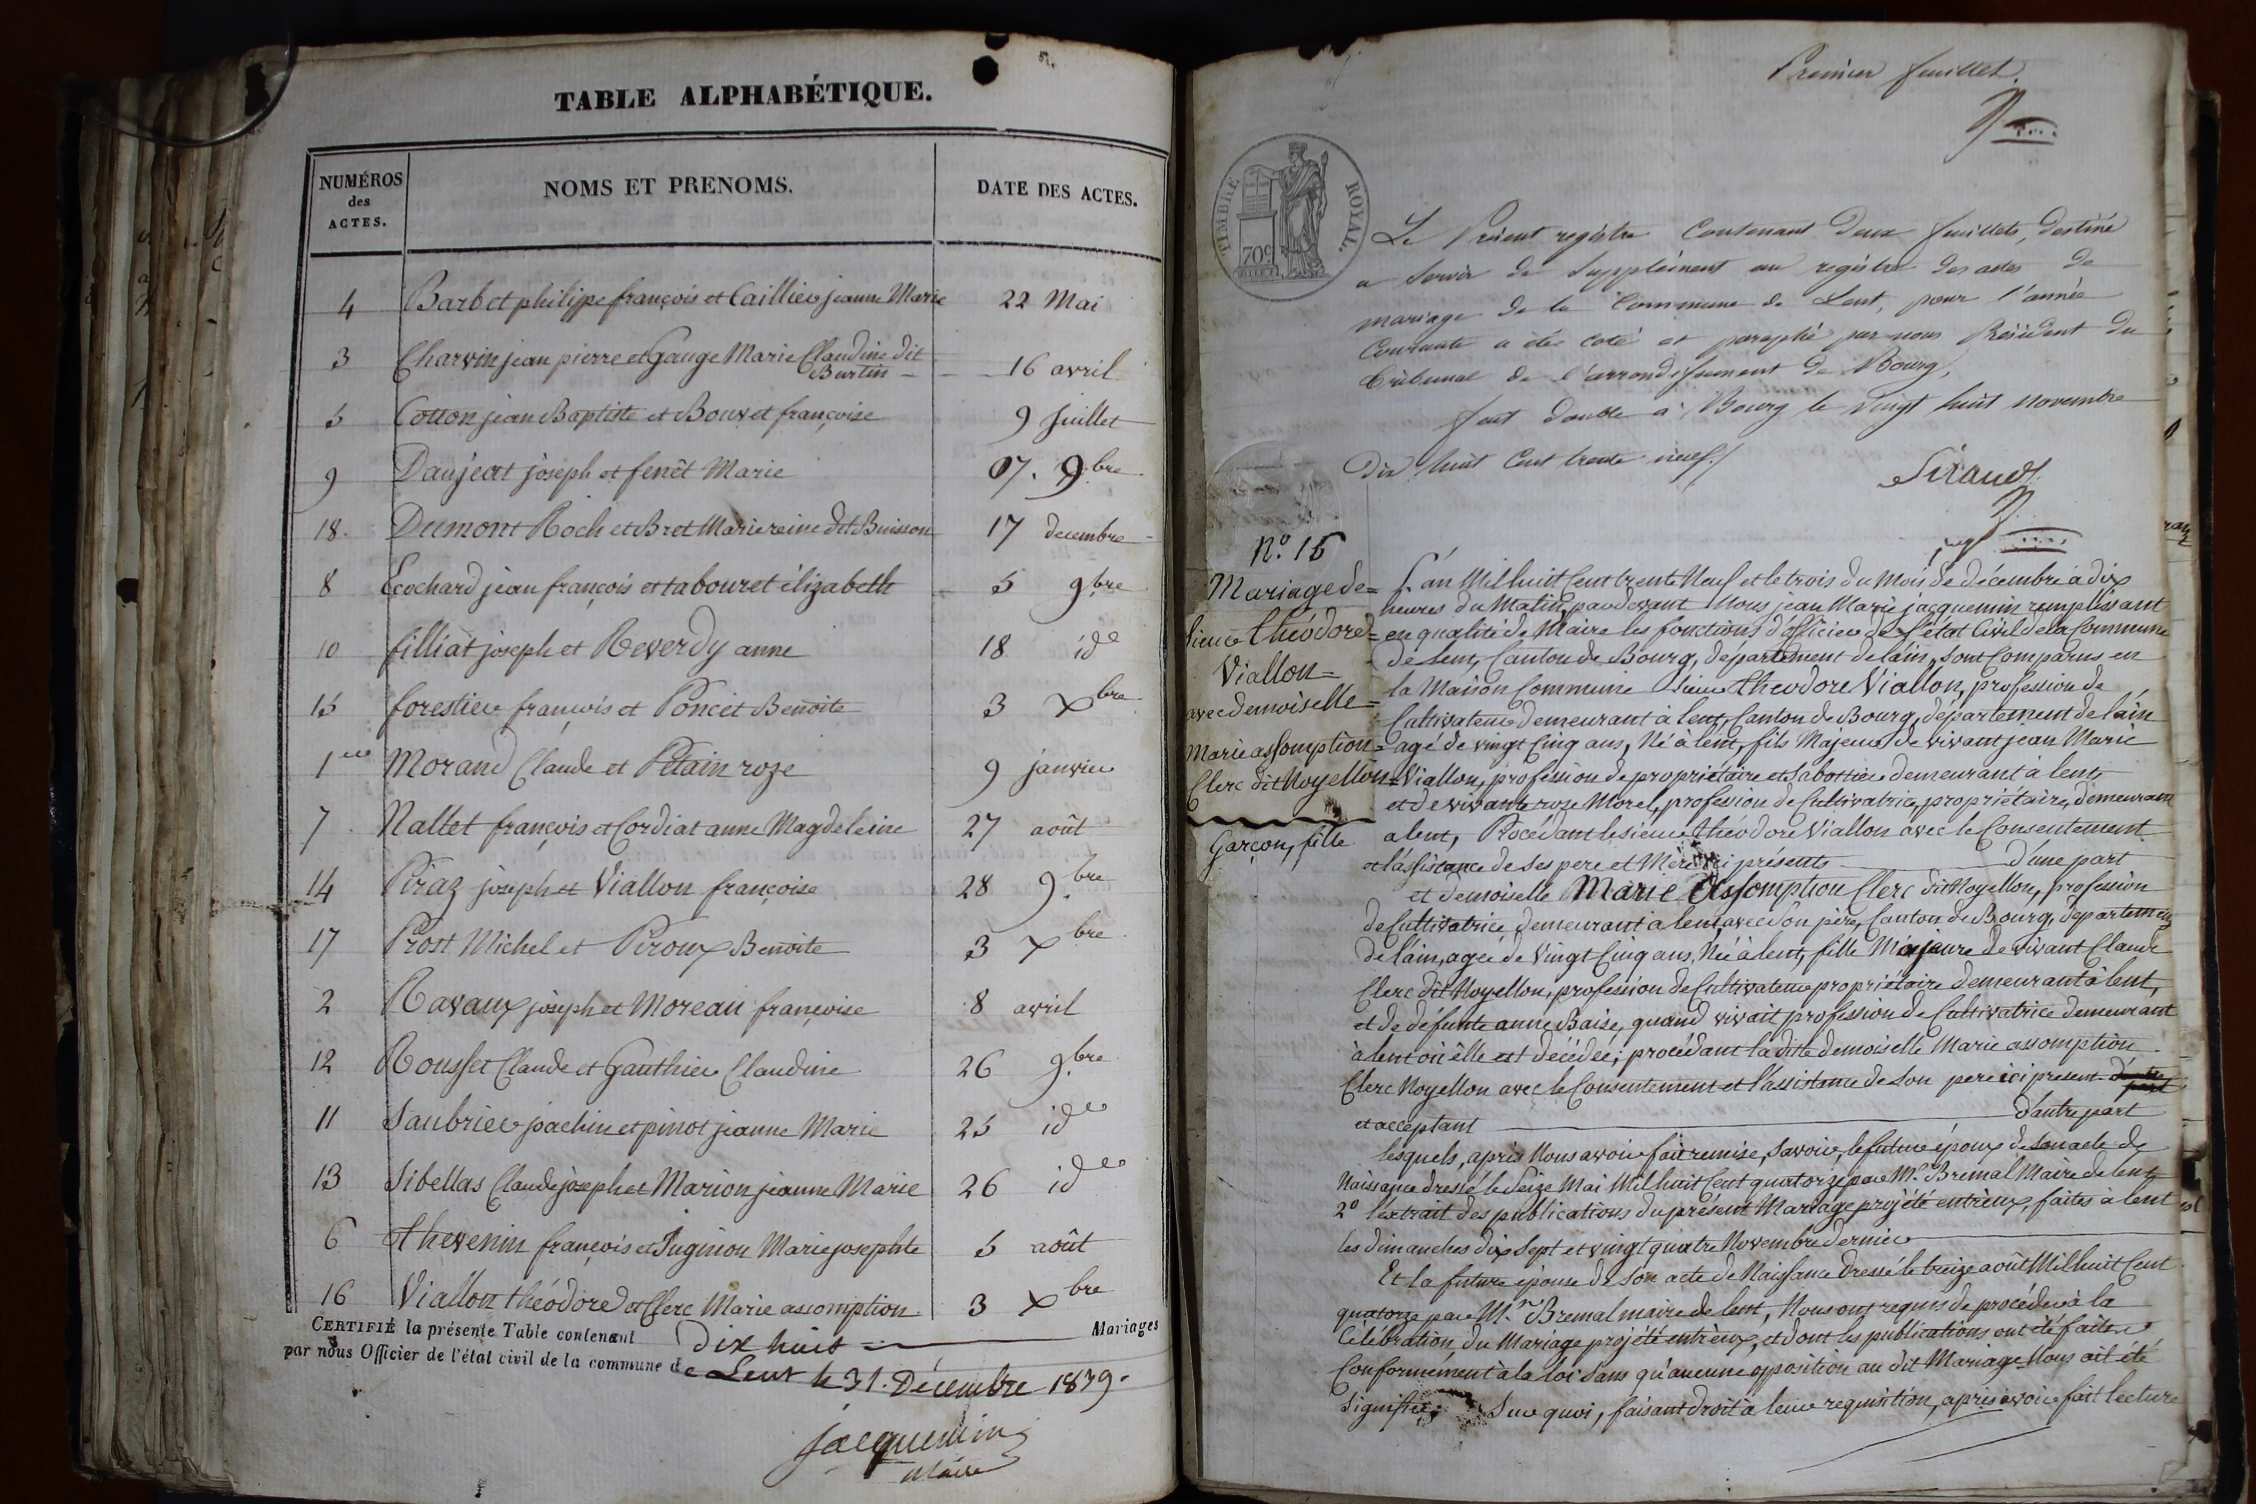 TABLE ALPHABÉTIQUE.
NUMÉROS des ACTES.
NOMS ET PRENOMS.
DATE DES ACTES.
4 Barbet philippe françois et Caillier jeanne Marie 22 Mai
3 Charvin jean pierre et Gauge Marie Claudine dit
Burtin 16 avril
5 Cotton jean Baptiste et Bouvet françoise 9 juillet
9 Daujeat joseph et fenêt Marie 07. 9.bre
18. Dumont Roch et Bret Marie reine dit Buisson 17 decembre
8 Ecochard jean françois et tabouret élizabeth 5 9.bre
10 filliat joseph et Reverdy anne 18 ide
15 forestier françois et Poncet Benoite 3 Xbre
1er Morand Claude et Pitain roze 9 janvier
7 Nallet françois et Cordiat anne Magdeleine 27 août
14 Piraz joseph et Viallon françoise 28 9.bre
17 Prost Michel et Peroux Benoite 3 Xbre
2 Ravaux joseph et Moreau françoise 8 avril
12 Rousset Claude et Gauthier Claudine 26 9.bre
11 Saubrier joachin et pinot jeanne Marie 25 ide
13 Sibellas Claude joseph et Marion jeanne Marie 26 ide
6 thevenin françois et Juginon Marie josephte 5 août
16 Viallon théodore et Clerc Marie assomption 3 Xbre
CERTIFIÉ la présente Table contenant Dix huit Mariages
par nous Officier de l'état civil de la commune de Lent le 31. Décembre 1839.
Jacquemin
Maire
Premier feuillet.
TIMBRE ROYAL.
70c
Le Présent registre Contenant Deux feuillets, destiné
a Servir de Supplément au registre des actes de
mariage de la Commune de Lent, pour l'année
Courante a été coté et paraphé par nous Président du
tribunal de l'arrondissement de Bourg,
fait double à Bourg le vingt huit novembre
Dix huit Cent trente neuf./
Sirand
N.o 16
Mariage de=
Sieur théodore=
Viallon=
avec demoiselle=
Marie assomption=
Clerc dit Noyellon=
Garçon, fille
L'an Mil huit Cent trente Neuf et le trois du Mois de décembre à dix
heures du Matin, par devant Nous jean Marie jacquemin remplissant
en qualité de Maire les fonctions d'officier de l'état Civil de la Commune
de Lent, Canton de Bourg, département de l'ain, sont Comparus en
la Maison Commune Sieur théodore Viallon, profession de
Cultivateur demeurant à lent, Canton de Bourg, département de l'ain
agé de vingt Cinq ans, Né à lent, fils Majeur de vivant jean Marie
Viallon, profession de propriétaire et Sabottier demeurant à lent,
et de vivante rose Morel, profession de Cultivatrice, propriétaire, demeurant
a lent, Procédant le sieur théodore Viallon avec le Consentement
et l'assistance de ses pere et Mère ici présents d'une part
et demoiselle Marie Assomption Clerc dit Noyellon, profession
de Cultivatrice demeurant à lent, avec son père, Canton de Bourg, département
de l'ain, agée de Vingt Cinq ans, Née à lent, fille Majeure de vivant Claude
Clerc dit Noyellon, profession de Cultivateur propriétaire demeurant à lent,
et de défunte anne Baise, quand vivait profession de Cultivatrice demeurant
à lent où elle est décédée; procédant la dite demoiselle Marie assomption
Clerc Noyellon avec le Consentement et l'assistance de son pere ici présent d'autre part
et acceptant d'autre part
lesquels, après Nous avoir fait remise, savoir, le futur époux de son acte de
Naissance dressé le Seize Mai Mil huit Cent quatorze par Mr. Bremal Maire de lent
2o l'extrait des publications du présent Mariage projété entr'eux, faites à lent
les dimanches dix sept et vingt quatre Novembre dernier
Et la future épouse de son acte de Naissance dressé le treize août Mil huit Cent
quatorze par Mr. Bremal maire de lent, Nous ont requis de procéder à la
Célébration du Mariage projété entr'eux, et dont les publications ont été faites
Conformément à la loi sans qu'aucune opposition au dit Mariage Nous ait été
Signifiée; Sur quoi, faisant droit à leur requisition, après avoir fait lecture